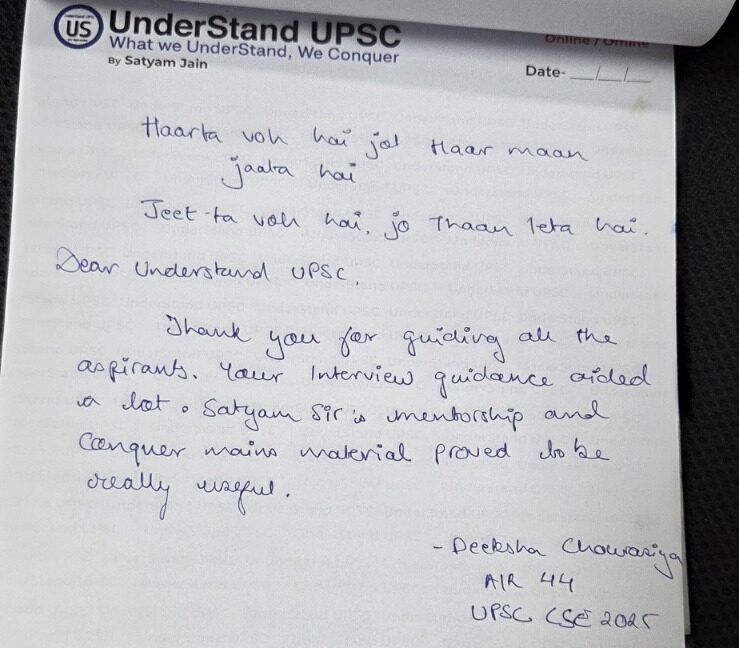 US
UnderStand UPSC
Online / Offline
What we UnderStand, We Conquer
By Satyam Jain
Date- __/__/__
Haarta voh hai jo Haar maan
jaata hai
Jeet-ta voh hai, jo Thaan leta hai.
Dear Understand UPSC,
Thank you for guiding all the
aspirants. Your Interview guidance aided
a lot. Satyam Sir's mentorship and
Conquer mains material proved to be
really useful.
- Deeksha Chowrasiya
AIR 44
UPSC CSE 2025